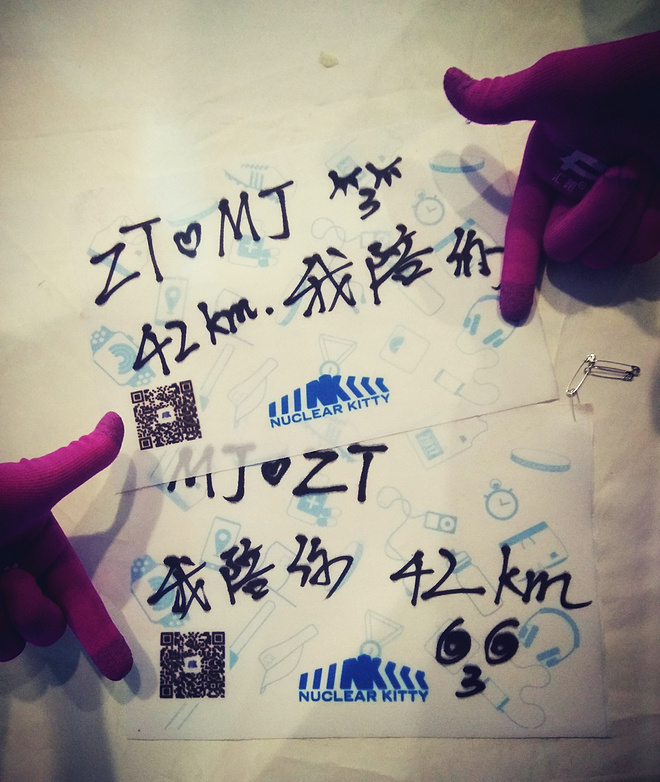 ZT♥MJ
42km.我陪你
NUCLEAR KITTY
MJ♥ZT
我陪你 42km
NUCLEAR KITTY